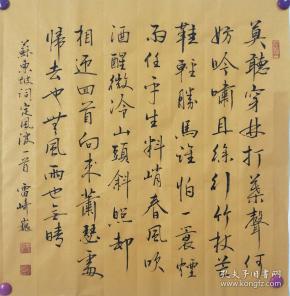 莫聽穿林打葉聲何
妨吟嘯且徐行竹杖芒
鞋輕勝馬誰怕一蓑煙
雨任平生料峭春風吹
酒醒微冷山頭斜照却
相迎回首向來蕭瑟處
歸去也無風雨也無晴
蘇東坡詞定風波一首 雷
孔夫子旧书网